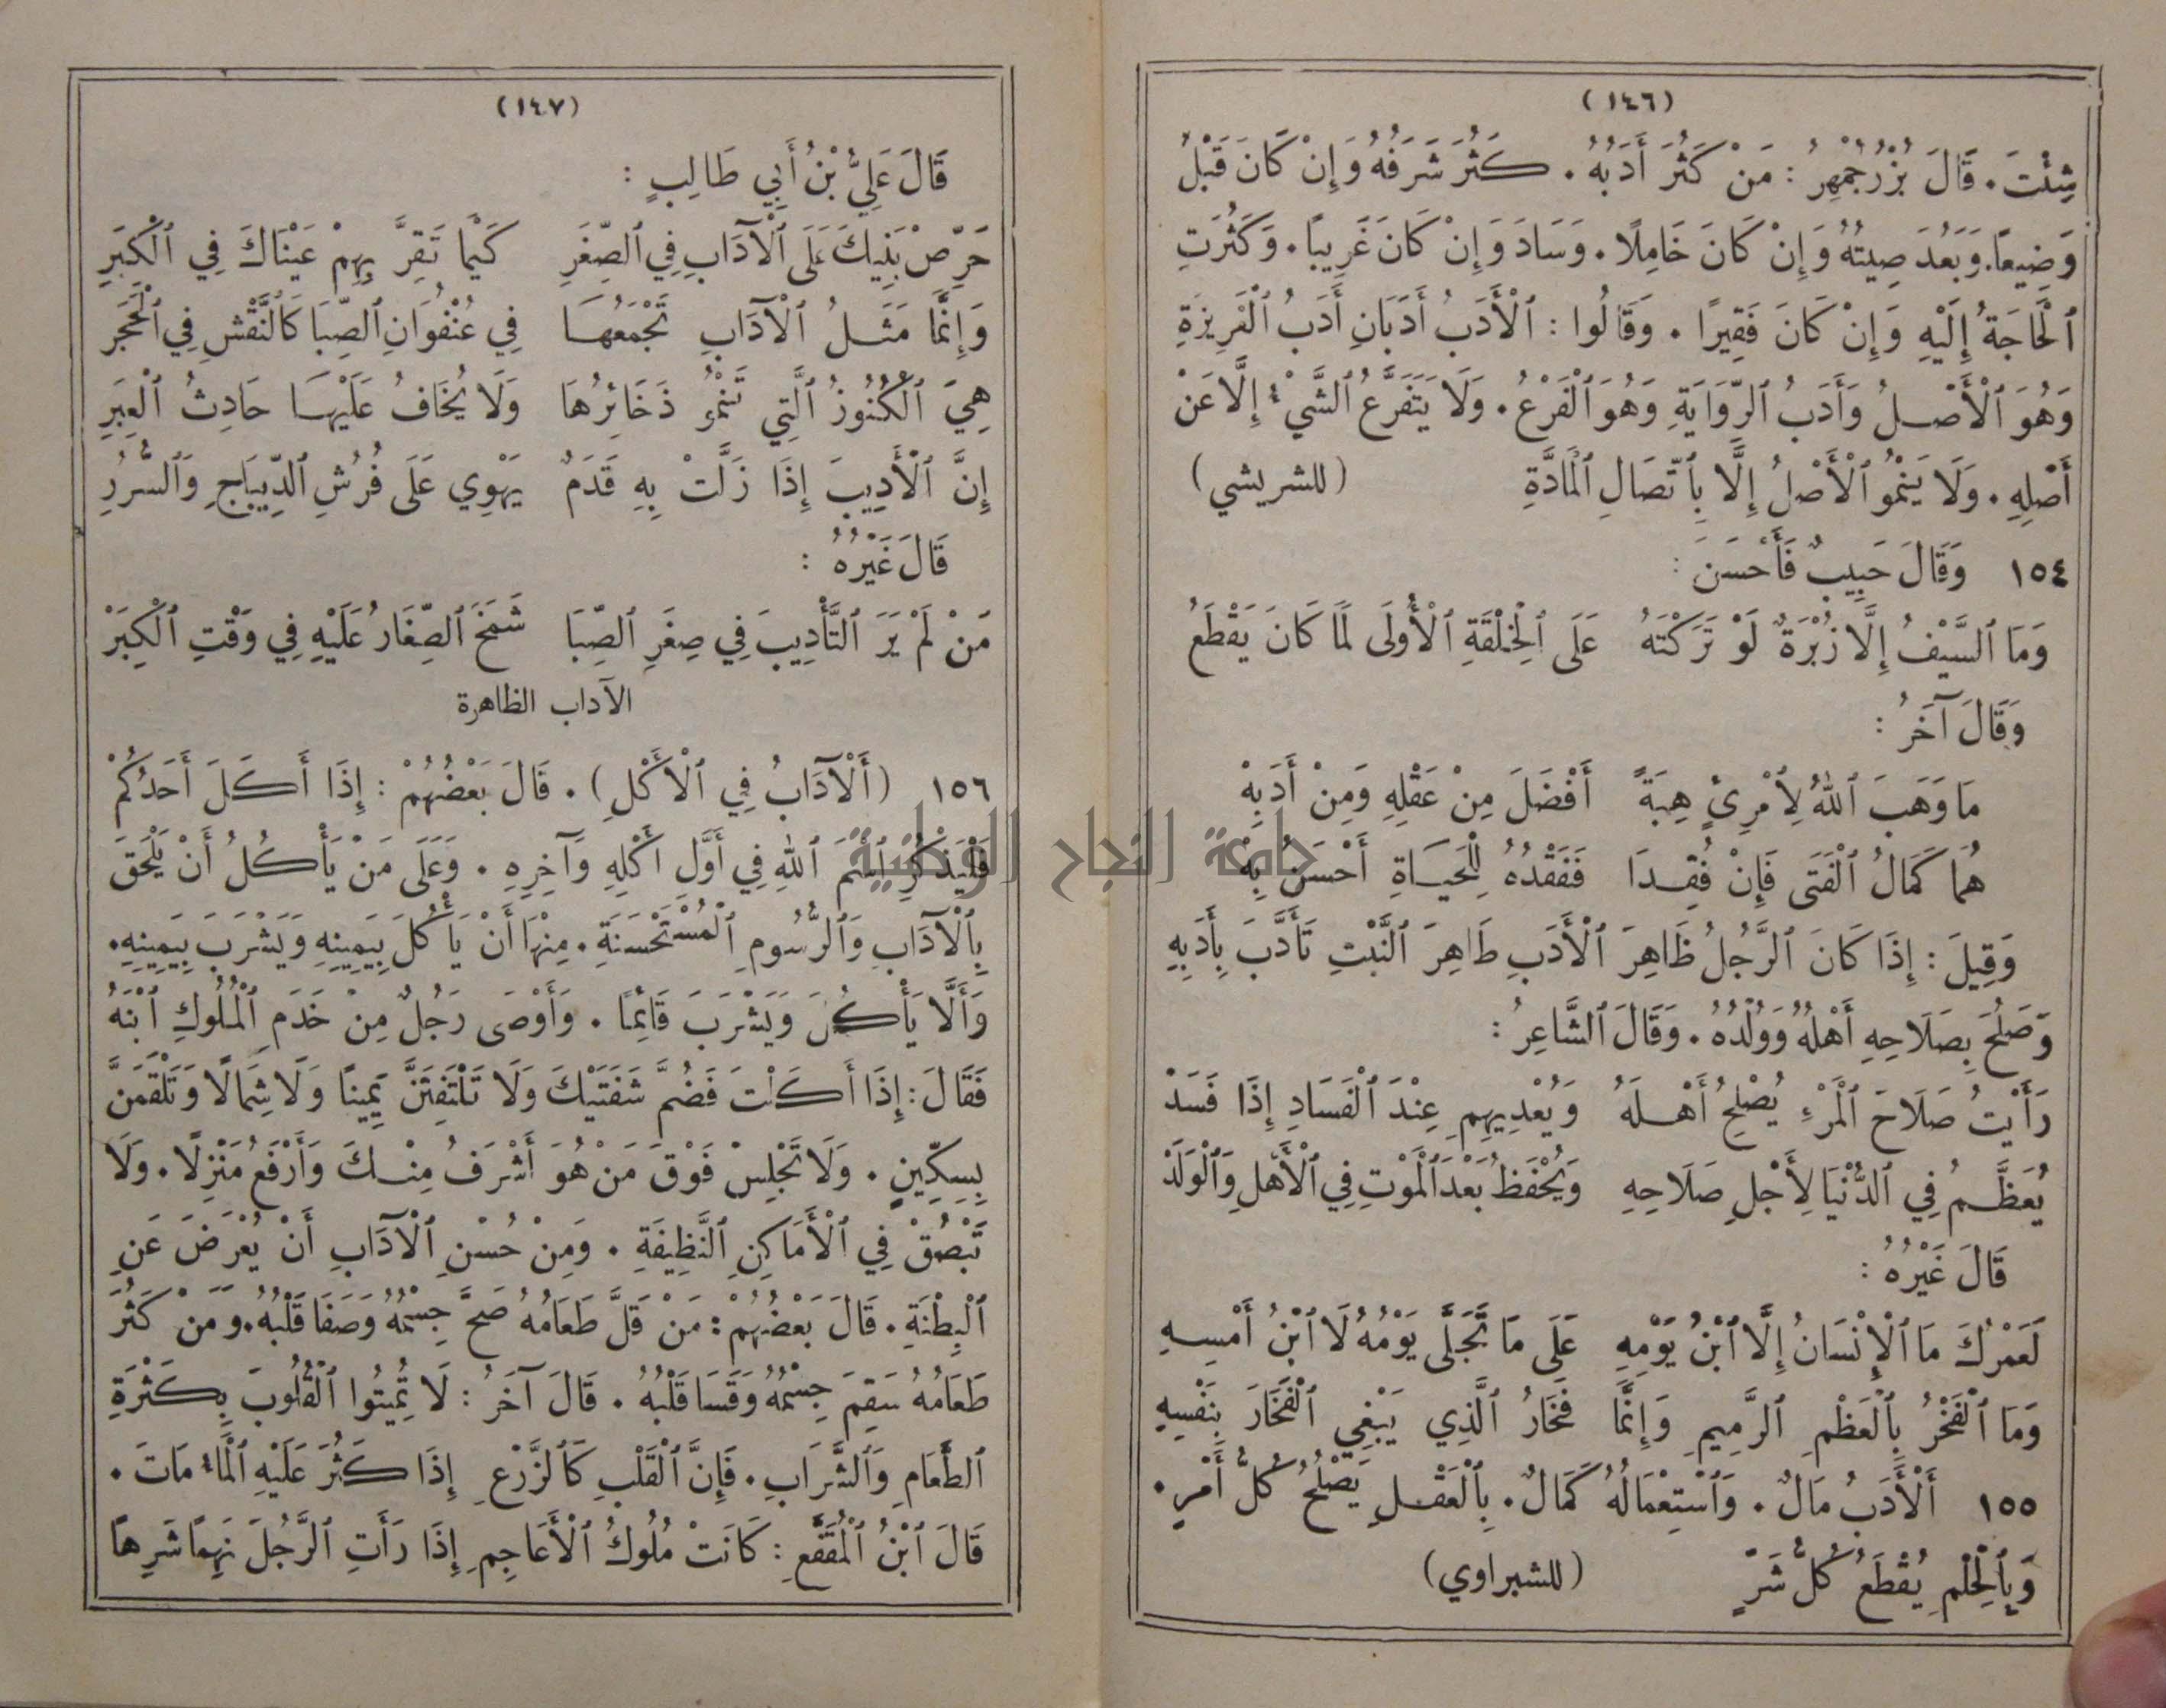 (١٤٦)
شِئْتَ. قَالَ بُزْرُجُمْهِرُ: مَنْ كَثُرَ أَدَبُهُ. كَثُرَ شَرَفُهُ وَإِنْ كَانَ قَبْلُ
وَضِيعًا. وَبَعُدَ صِيتُهُ وَإِنْ كَانَ خَامِلًا. وَسَادَ وَإِنْ كَانَ غَرِيبًا. وَكَثُرَتِ
ٱلْحَاجَةُ إِلَيْهِ وَإِنْ كَانَ فَقِيرًا. وَقَالُوا: ٱلْأَدَبُ أَدَبَانِ أَدَبُ ٱلْغَرِيزَةِ
وَهُوَ ٱلْأَصْلُ وَأَدَبُ ٱلرِّوَايَةِ وَهُوَ ٱلْفَرْعُ. وَلَا يَتَفَرَّعُ ٱلشَّيْءُ إِلَّا عَنْ
أَصْلِهِ. وَلَا يَنْمُو ٱلْأَصْلُ إِلَّا بِٱتِّصَالِ ٱلْمَادَّةِ (للشريشي)
١٥٤ وَقَالَ حَبِيبٌ فَأَحْسَنَ:
وَمَا ٱلسَّيْفُ إِلَّا زُبْرَةٌ لَوْ تَرَكْتَهُ عَلَى ٱلْخِلْقَةِ ٱلْأُولَى لَمَا كَانَ يَقْطَعُ
وَقَالَ آخَرُ:
مَا وَهَبَ ٱللهُ لِٱمْرِئٍ هِبَةً أَفْضَلَ مِنْ عَقْلِهِ وَمِنْ أَدَبِهْ
هُمَا كَمَالُ ٱلْفَتَى فَإِنْ فُقِدَا فَفَقْدُهُ لِلْحَيَاةِ أَحْسَنُ بِهْ
وَقِيلَ: إِذَا كَانَ ٱلرَّجُلُ ظَاهِرَ ٱلْأَدَبِ طَاهِرَ ٱلنَّبْتِ تَأَدَّبَ بِأَدَبِهِ
وَصَلُحَ بِصَلَاحِهِ أَهْلُهُ وَوُلْدُهُ. وَقَالَ ٱلشَّاعِرُ:
رَأَيْتُ صَلَاحَ ٱلْمَرْءِ يُصْلِحُ أَهْلَهُ وَيُعْدِيهِمِ عِنْدَ ٱلْفَسَادِ إِذَا فَسَدْ
يُعَظَّمُ فِي ٱلدُّنْيَا لِأَجْلِ صَلَاحِهِ وَيُحْفَظُ بَعْدَ ٱلْمَوْتِ فِي ٱلْأَهْلِ وَٱلْوَلَدْ
قَالَ غَيْرُهُ:
لَعَمْرُكَ مَا ٱلْإِنْسَانُ إِلَّا ٱبْنُ يَوْمِهِ عَلَى مَا تَجَلَّى يَوْمُهُ لَا ٱبْنُ أَمْسِهِ
وَمَا ٱلْفَخْرُ بِٱلْعَظْمِ ٱلرَّمِيمِ وَإِنَّمَا فَخَارُ ٱلَّذِي يَبْغِي ٱلْفَخَارَ بِنَفْسِهِ
١٥٥ أَلْأَدَبُ مَالٌ. وَٱسْتِعْمَالُهُ كَمَالٌ. بِٱلْعَقْلِ يَصْلُحُ كُلُّ أَمْرٍ.
وَبِٱلْحِلْمِ يُقْطَعُ كُلُّ شَرٍّ (للشبراوي)
(١٤٧)
قَالَ عَلِيُّ بْنُ أَبِي طَالِبٍ:
حَرِّصْ بَنِيكَ عَلَى ٱلْآدَابِ فِي ٱلصِّغَرِ كَيْمَا تَقِرَّ بِهِمْ عَيْنَاكَ فِي ٱلْكِبَرِ
وَإِنَّمَا مَثَلُ ٱلْآدَابِ تَجْمَعُهَا فِي عُنْفُوَانِ ٱلصِّبَا كَٱلنَّقْشِ فِي ٱلْحَجَرِ
هِيَ ٱلْكُنُوزُ ٱلَّتِي تَنْمُو ذَخَائِرُهَا وَلَا يُخَافُ عَلَيْهَا حَادِثُ ٱلْعِبَرِ
إِنَّ ٱلْأَدِيبَ إِذَا زَلَّتْ بِهِ قَدَمٌ يَهْوِي عَلَى فُرُشِ ٱلدِّيبَاجِ وَٱلسُّرُرِ
قَالَ غَيْرُهُ:
مَنْ لَمْ يَرَ ٱلتَّأْدِيبَ فِي صِغَرِ ٱلصِّبَا شَمَخَ ٱلصَّغَارُ عَلَيْهِ فِي وَقْتِ ٱلْكِبَرْ
الآداب الظاهرة
١٥٦ (أَلْآدَابُ فِي ٱلْأَكْلِ). قَالَ بَعْضُهُمْ: إِذَا أَكَلَ أَحَدُكُمْ
فَلْيَذْكُرِ ٱسْمَ ٱللهِ فِي أَوَّلِ أَكْلِهِ وَآخِرِهِ. وَعَلَى مَنْ يَأْكُلُ أَنْ يَلْحَقَ
بِٱلْآدَابِ وَٱلرُّسُومِ ٱلْمُسْتَحْسَنَةِ. مِنْهَا أَنْ يَأْكُلَ بِيَمِينِهِ وَيَشْرَبَ بِيَمِينِهِ.
وَأَلَّا يَأْكُلَ وَيَشْرَبَ قَائِمًا. وَأَوْصَى رَجُلٌ مِنْ خَدَمِ ٱلْمُلُوكِ ٱبْنَهُ
فَقَالَ: إِذَا أَكَلْتَ فَضُمَّ شَفَتَيْكَ وَلَا تَلْتَفِتَنَّ يَمِينًا وَلَا شِمَالًا وَتَلْقَمَنَّ
بِسِكِّينٍ. وَلَا تَجْلِسْ فَوْقَ مَنْ هُوَ أَشْرَفُ مِنْكَ وَأَرْفَعُ مَنْزِلًا. وَلَا
تَبْصُقْ فِي ٱلْأَمَاكِنِ ٱلنَّظِيفَةِ. وَمِنْ حُسْنِ ٱلْآدَابِ أَنْ يُعْرَضَ عَنِ
ٱلْبِطْنَةِ. قَالَ بَعْضُهُمْ: مَنْ قَلَّ طَعَامُهُ صَحَّ جِسْمُهُ وَصَفَا قَلْبُهُ. وَمَنْ كَثُرَ
طَعَامُهُ سَقِمَ جِسْمُهُ وَقَسَا قَلْبُهُ. قَالَ آخَرُ: لَا تُمِيتُوا ٱلْقُلُوبَ بِكَثْرَةِ
ٱلطَّعَامِ وَٱلشَّرَابِ. فَإِنَّ ٱلْقَلْبَ كَٱلزَّرْعِ إِذَا كَثُرَ عَلَيْهِ ٱلْمَاءُ مَاتَ.
قَالَ ٱبْنُ ٱلْمُقَفَّعِ: كَانَتْ مُلُوكُ ٱلْأَعَاجِمِ إِذَا رَأَتِ ٱلرَّجُلَ نَهِمًا شَرِهًا
جامعة النجاح الوطنية